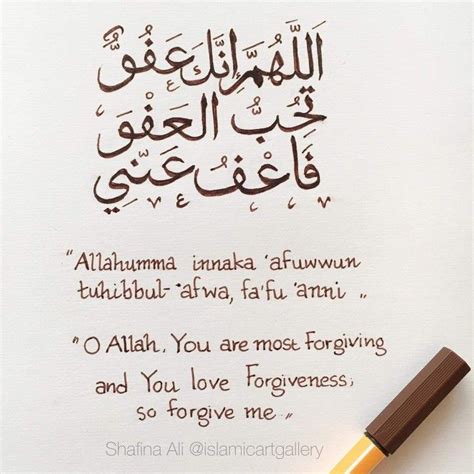 اللَّهُمَّ إِنَّكَ عَفُوٌّ
تُحِبُّ العَفْوَ
فَاعْفُ عَنِّي
"Allahumma innaka 'afuwwun
tuhibbul-'afwa, fa'fu 'anni „
"O Allah, You are most Forgiving
and You love Forgiveness;
so forgive me „
Shafina Ali @islamicartgallery